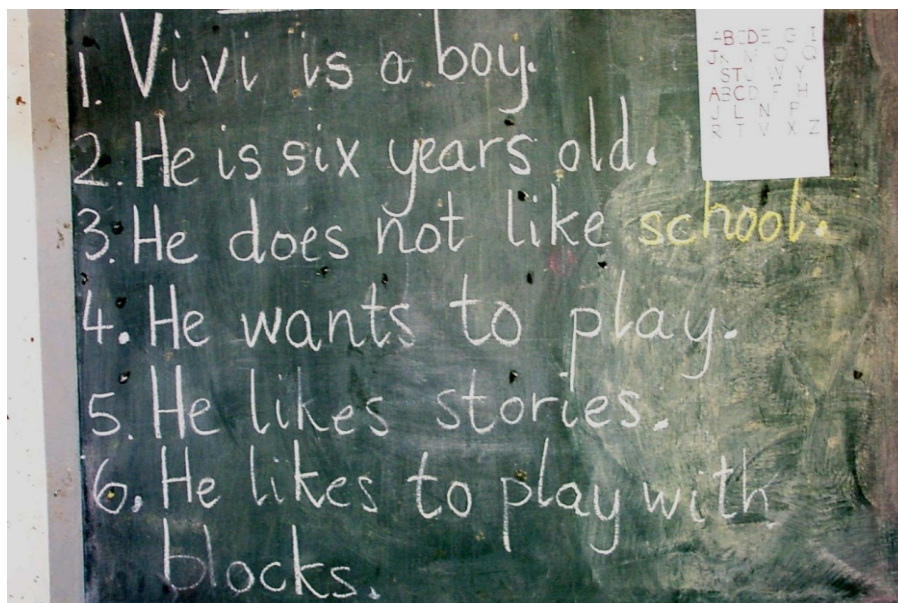 1. Vivi is a boy.
2. He is six years old.
3. He does not like school.
4. He wants to play.
5. He likes stories.
6. He likes to play with
blocks.
ABCDE G I
JK M O Q
ST W Y
ABCD F H
J L N P
R T V X Z